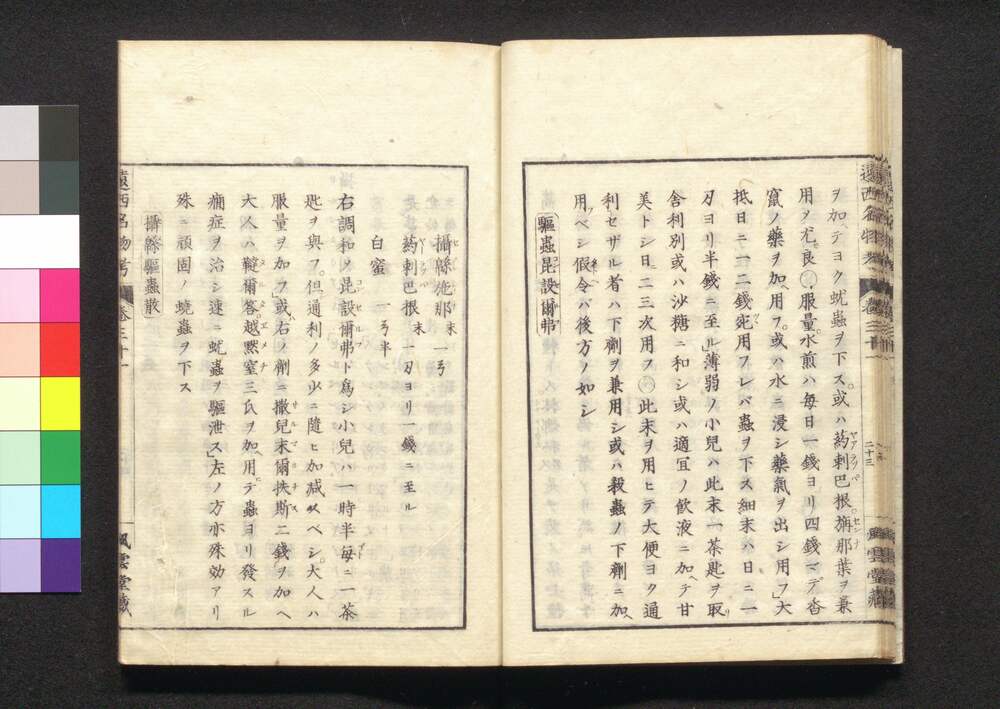 ヲ加ヘテヨク蚘蟲ヲ下ス。或ハ葯剌巴根旃那葉ヲ兼
用ヲ尤良○服量水煎ハ毎日一錢ヨリ四錢マデ香
竄ノ藥ヲ加ヘ用フ。或ハ水ニ浸シ藥氣ヲ出シ用フ」大
抵日ニ一二錢宛用フレバ蟲ヲ下ス細末ハ日ニ一
刃ヨリ半錢ニ至ル」薄弱ノ小兒ハ此末一茶匙ヲ取リ
舍利別或ハ沙糖ニ和シ或ハ適宜ノ飲液ニ加ヘテ甘
美トシ日ニ二三次用フ○此末ヲ用ヒテ大便ヨク通
利セザル者ハ下劑ヲ兼用シ或ハ殺蟲ノ下劑ニ加ヘ
用フベシ假令バ後方ノ如シ
驅蟲昆設爾弗
攝綿施那末 一弓
葯剌巴根末 一刃ヨリ一錢ニ至ル
白蜜 一弓半
右調和シ昆設爾弗ト為シ小兒ハ一時半毎ニ一茶
匙ヲ與フ。但通利ノ多少ニ隨ヒ加減スベシ。大人ハ
服量ヲ加フ」或ハ右ノ劑ニ撒兒末爾扶斯二錢ヲ加ヘ
大人ハ韃爾答越黙窒三氏ヲ加ヘ用ヒテ蟲ヨリ發スル
癇症ヲ治シ速ニ蚘蟲ヲ驅泄ス」左ノ方亦殊効アリ
殊ニ頑固ノ蟯蟲ヲ下ス
攝綿驅蟲散
遠西名物考
卷三十一
二十三
風雲堂藏
遠西名物考
卷三十一
風雲堂藏